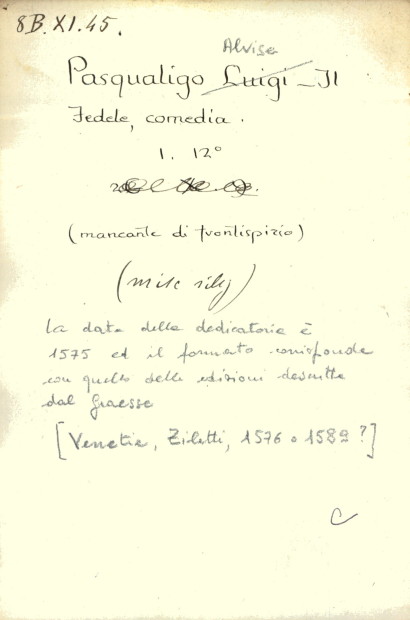 8B.XI.45.
Alvise
Pasqualigo Luigi - Il
Fedele, comedia.
1. 12°
(mancante di frontispizio)
(misc
La data della dedicatoria è
1575 ed il formato corrisponde
con quello delle edizioni descritte
dal Graesse
[Venetia, Ziletti, 1576 o 1589 ?]
C